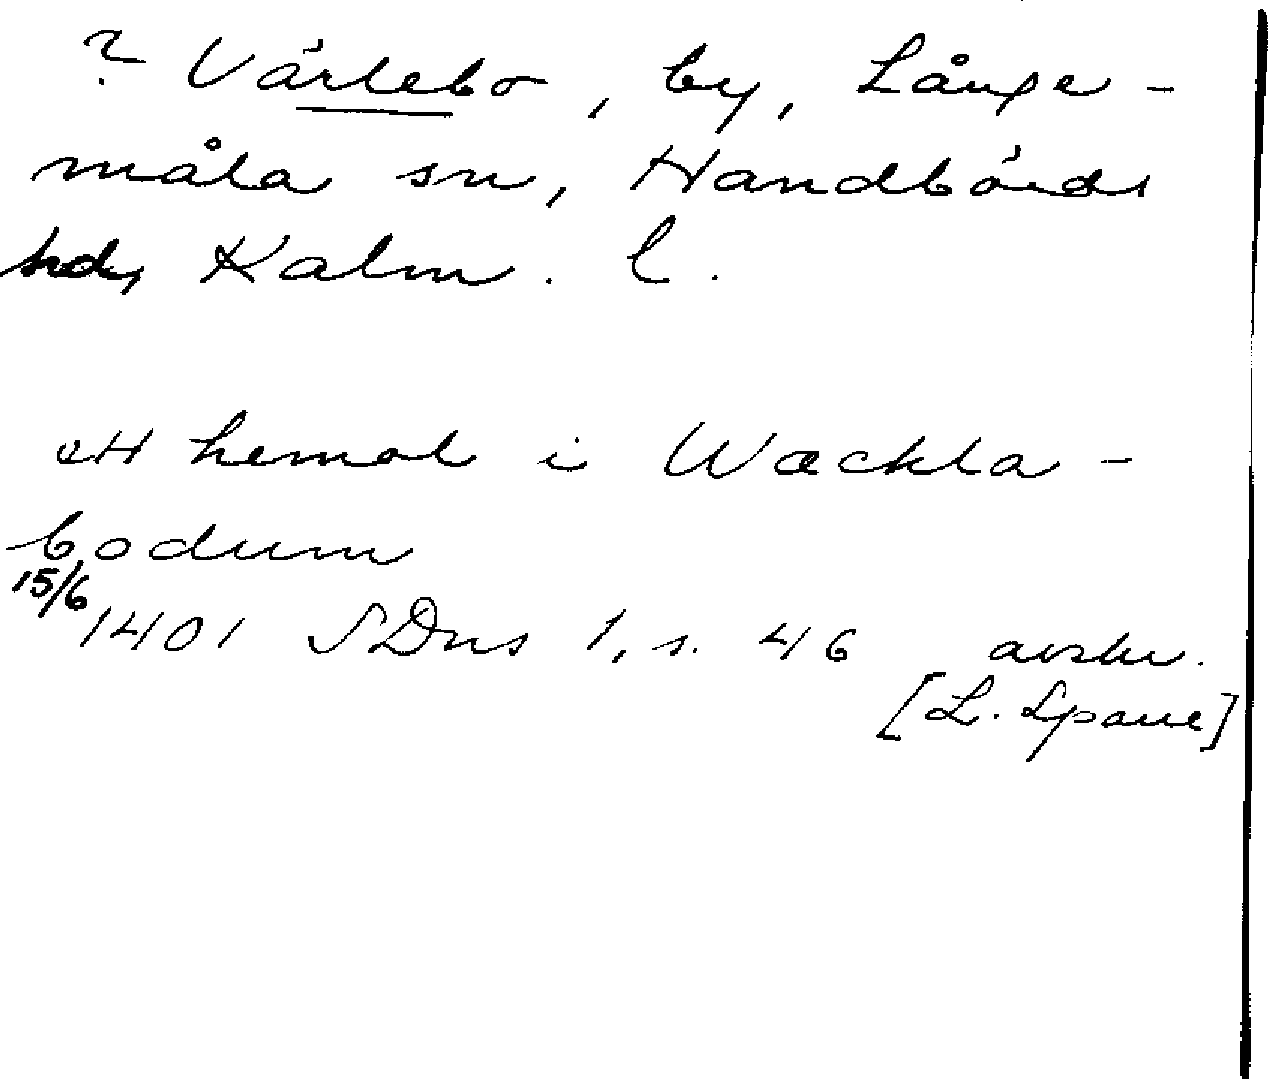 ? Värlebo, by, Långe-
måla sn, Handbörds
hd, Kalm. l.
ett hemal i Wœckla-
bodum
15/6 1401 SDns 1, s. 46 avskr.
[L. Spane]